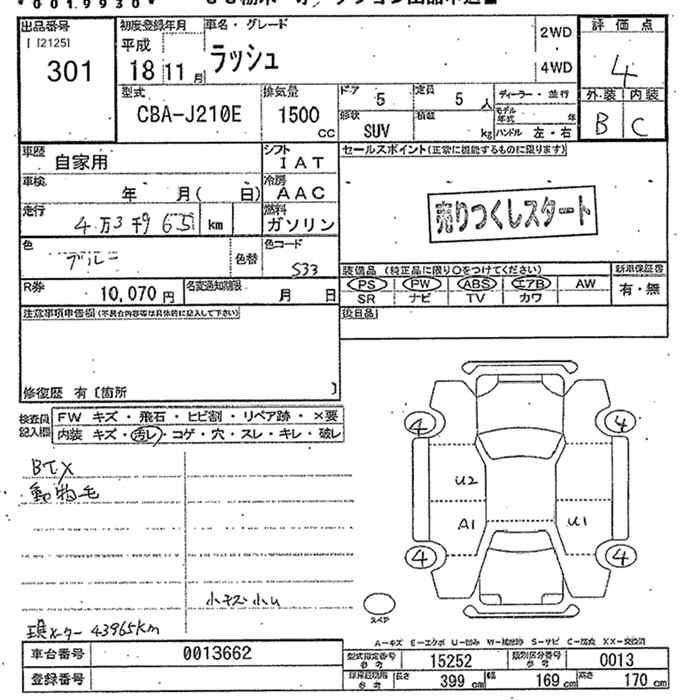 *0019930*
出品番号 初度登録年月 車名・グレード 2WD 評価点
[21251]
301 平成 18 11月 ラッシュ 4WD 4
型式 排気量 ドア 5 定員 5人 ディーラー・並行 外装 内装
CBA-J210E 1500 cc 形状 SUV 積載 kg モデル年式 年 ハンドル 左・右 B C
車歴 自家用 シフト IAT セールスポイント(正常に機能するものに限ります)
車検 年 月( 日) 冷房 AAC
走行 4万3千965 km 燃料 ガソリン 売りつくしスタート
色 ブルー 色替 色コード S33
装備品(純正品に限り○をつけてください) 新車保証書
R券 10,070円 名変通知期限 月 日 PS PW ABS エアB AW 有・無
SR ナビ TV カワ
注意事項申告欄(不具合内容等は具体的に記入して下さい) 後日品
修復歴 有〔箇所 〕
検査員記入欄 FW キズ・飛石・ヒビ割・リペア跡・×要
内装 キズ・汚レ・コゲ・穴・スレ・キレ・破レ
BTX
動物毛
小キズ小U
現メーター 43965km
4 4
U2
A1 U1
4 4
スペア
A-キズ E-エクボ U-凹み W-補修跡 S-サビ C-腐食 XX-交換済
車台番号 0013662 型式指定番号 参考 15252 類別区分番号 参考 0013
登録番号 長さ 399 cm 幅 169 cm 高さ 170 cm